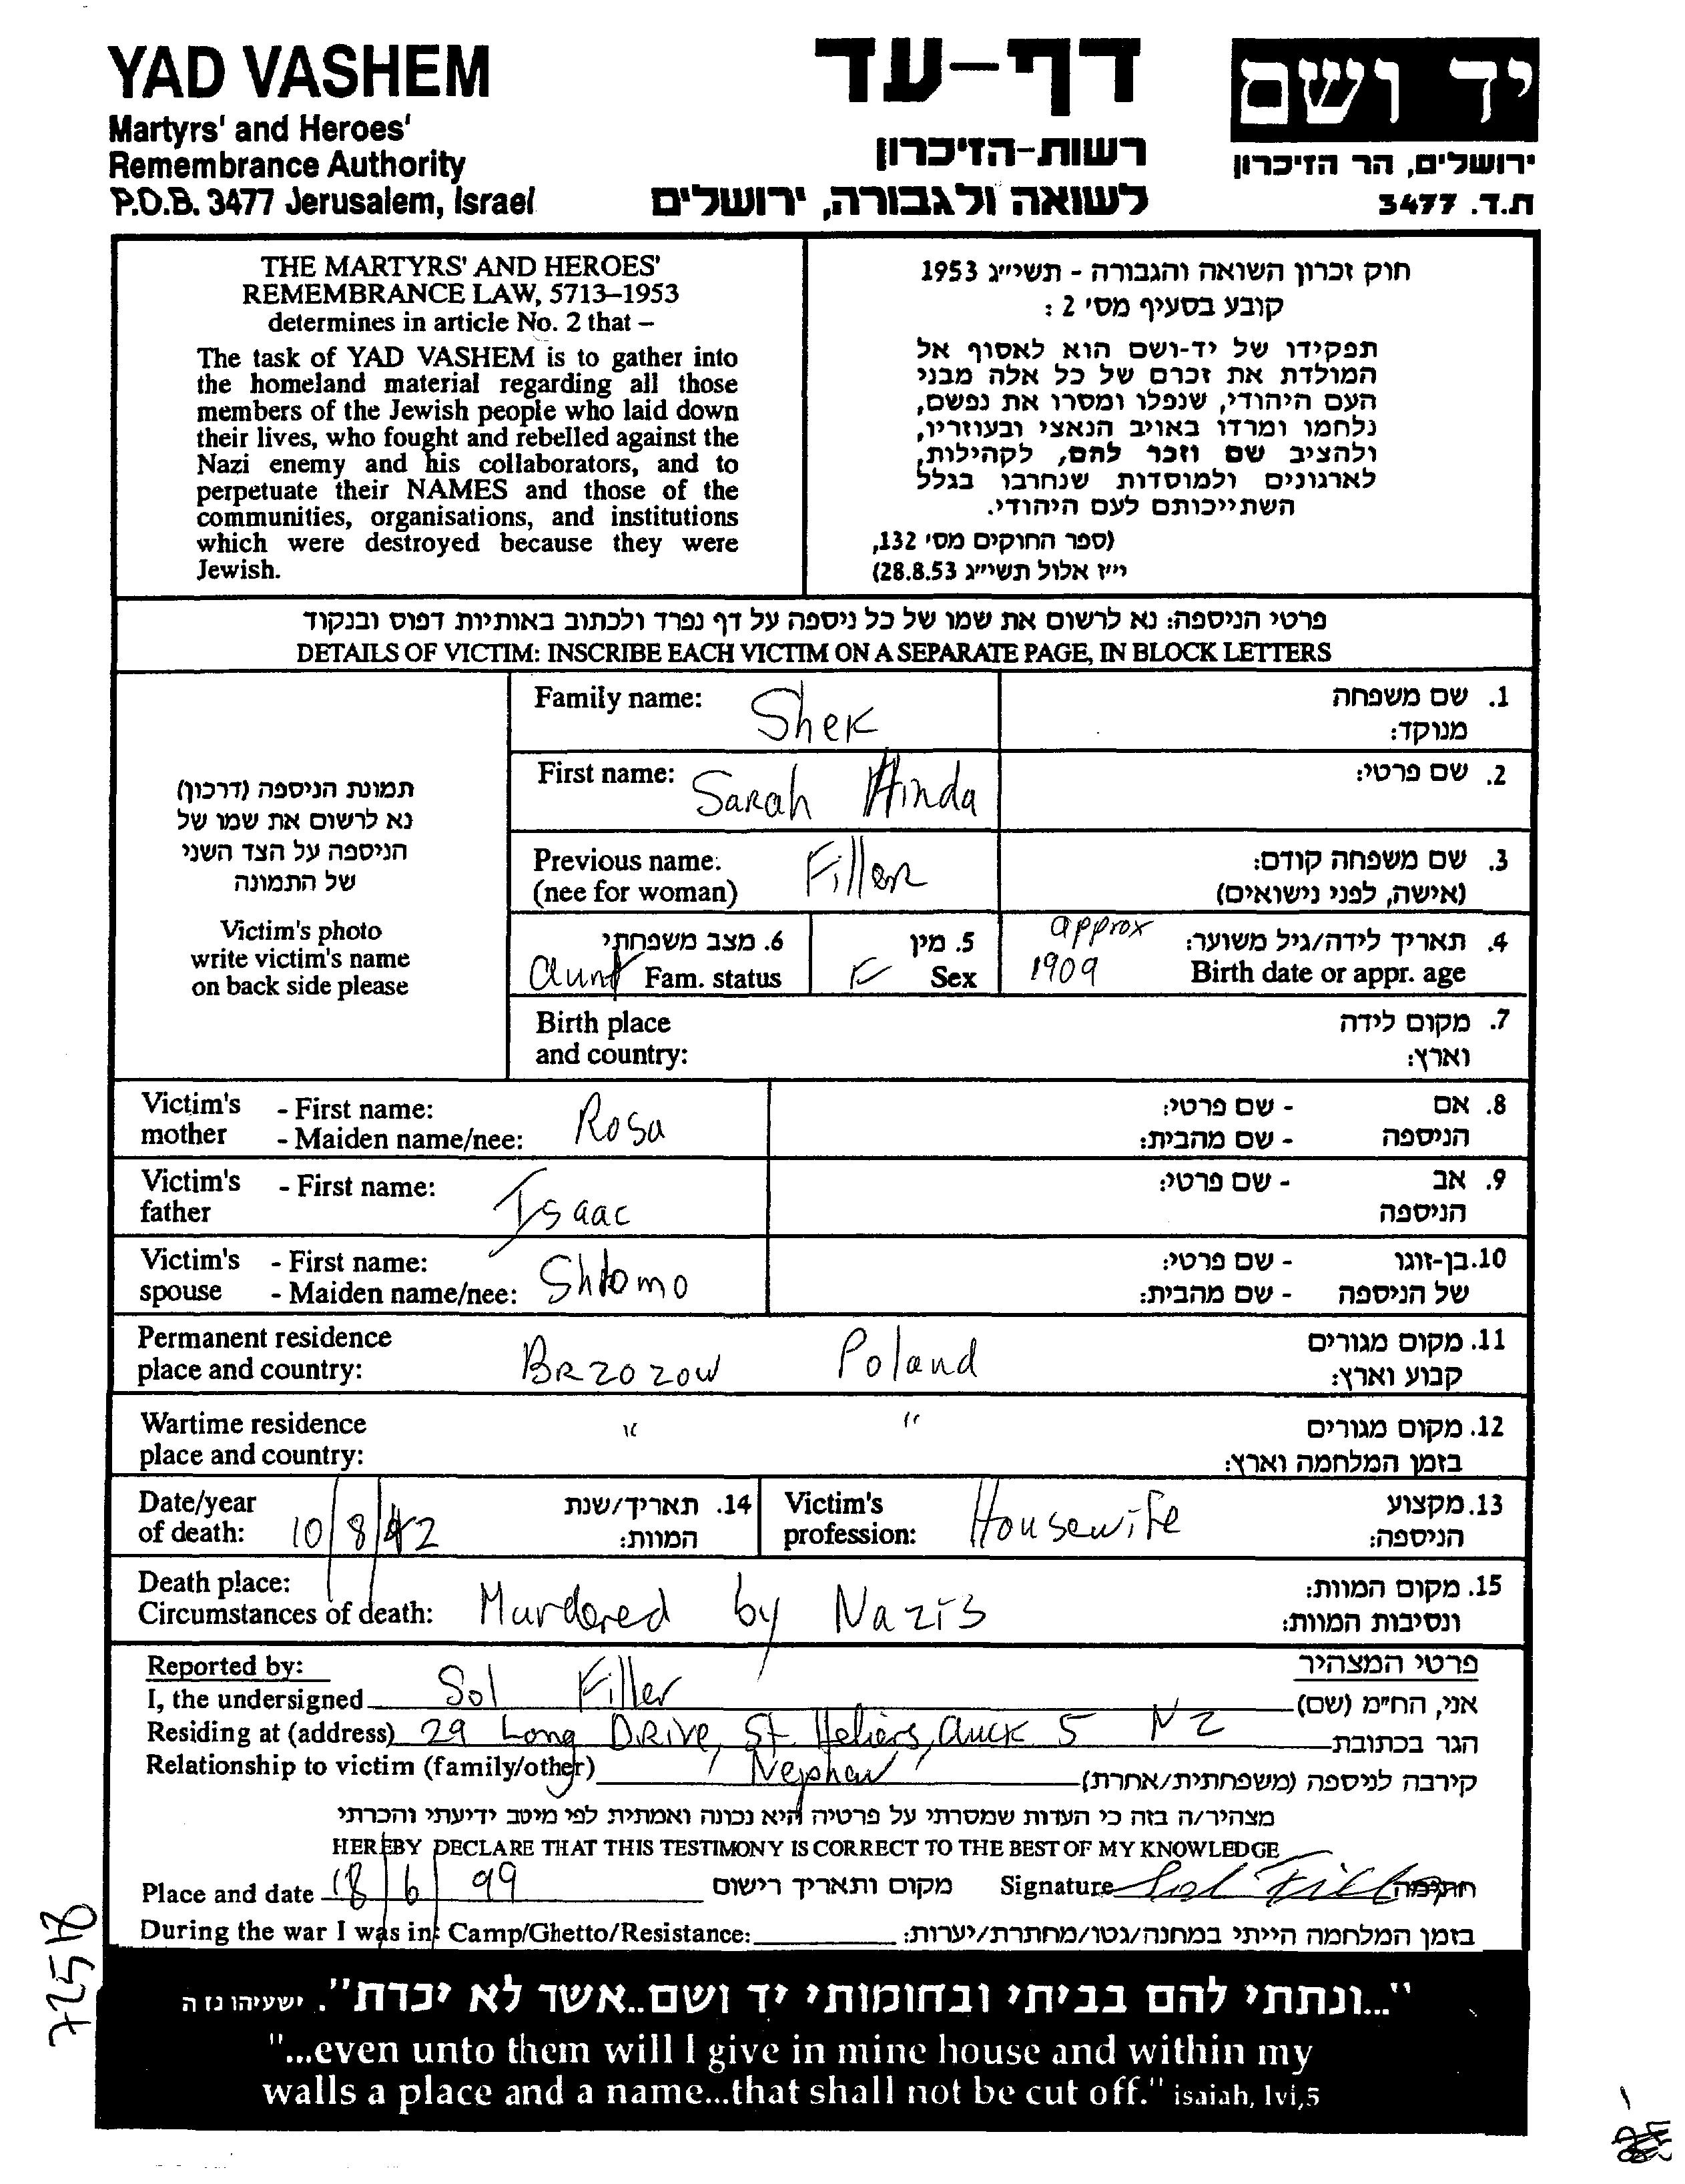 YAD VASHEM
Martyrs' and Heroes'
Remembrance Authority
P.O.B. 3477 Jerusalem, Israel
דף-עד
רשות-הזיכרון
לשואה ולגבורה, ירושלים
יד ושם
ירושלים, הר הזיכרון
ת.ד. 3477
THE MARTYRS' AND HEROES'
REMEMBRANCE LAW, 5713–1953
determines in article No. 2 that –
The task of YAD VASHEM is to gather into
the homeland material regarding all those
members of the Jewish people who laid down
their lives, who fought and rebelled against the
Nazi enemy and his collaborators, and to
perpetuate their NAMES and those of the
communities, organisations, and institutions
which were destroyed because they were
Jewish.
חוק זכרון השואה והגבורה - תשי״ג 1953
קובע בסעיף מס׳ 2 :
תפקידו של יד-ושם הוא לאסוף אל
המולדת את זכרם של כל אלה מבני
העם היהודי, שנפלו ומסרו את נפשם,
נלחמו ומרדו באויב הנאצי ובעוזריו,
ולהציב שם וזכר להם, לקהילות,
לארגונים ולמוסדות שנחרבו בגלל
השתייכותם לעם היהודי.
(ספר החוקים מס׳ 132,
י״ז אלול תשי״ג 28.8.53)
פרטי הניספה: נא לרשום את שמו של כל ניספה על דף נפרד ולכתוב באותיות דפוס ובנקוד
DETAILS OF VICTIM: INSCRIBE EACH VICTIM ON A SEPARATE PAGE, IN BLOCK LETTERS
תמונת הניספה (דרכון)
נא לרשום את שמו של
הניספה על הצד השני
של התמונה
Victim's photo
write victim's name
on back side please
Family name: Shek 1. שם משפחה
מנוקד:
First name: Sarah Hinda 2. שם פרטי:
Previous name: Filler 3. שם משפחה קודם:
(nee for woman) (אישה, לפני נישואים)
6. מצב משפחתי 5. מין approx 4. תאריך לידה/גיל משוער:
aunt Fam. status F Sex 1909 Birth date or appr. age
Birth place 7. מקום לידה
and country: וארץ:
Victim's - First name: Rosa - שם פרטי: 8. אם
mother - Maiden name/nee: - שם מהבית: הניספה
Victim's - First name: Isaac - שם פרטי: 9. אב
father הניספה
Victim's - First name: Shlomo - שם פרטי: 10.בן-זוגו
spouse - Maiden name/nee: - שם מהבית: של הניספה
Permanent residence 11. מקום מגורים
place and country: BRZOZOW Poland קבוע וארץ:
Wartime residence " " 12. מקום מגורים
place and country: בזמן המלחמה וארץ:
Date/year 14. תאריך/שנת Victim's Housewife 13.מקצוע
of death: 10/8/42 המוות: profession: הניספה:
Death place: 15. מקום המוות:
Circumstances of death: Murdered by Nazis ונסיבות המוות:
Reported by: פרטי המצהיר
I, the undersigned Sol Filler אני, הח״מ (שם)
Residing at (address) 29 Long DRive, St. Heliers, Auck 5 NZ הגר בכתובת
Relationship to victim (family/other) Nephew קירבה לניספה (משפחתית/אחרת)
מצהיר/ה בזה כי העדות שמסרתי על פרטיה היא נכונה ואמתית לפי מיטב ידיעתי והכרתי
HEREBY DECLARE THAT THIS TESTIMONY IS CORRECT TO THE BEST OF MY KNOWLEDGE
Place and date 18/6/99 מקום ותאריך רישום Signature Sol Filler חתימה
During the war I was in: Camp/Ghetto/Resistance: בזמן המלחמה הייתי במחנה/גטו/מחתרת/יערות:
"...ונתתי להם בביתי ובחומותי יד ושם..אשר לא יכרת". ישעיהו נז ה
"...even unto them will I give in mine house and within my
walls a place and a name...that shall not be cut off." isaiah, lvi,5